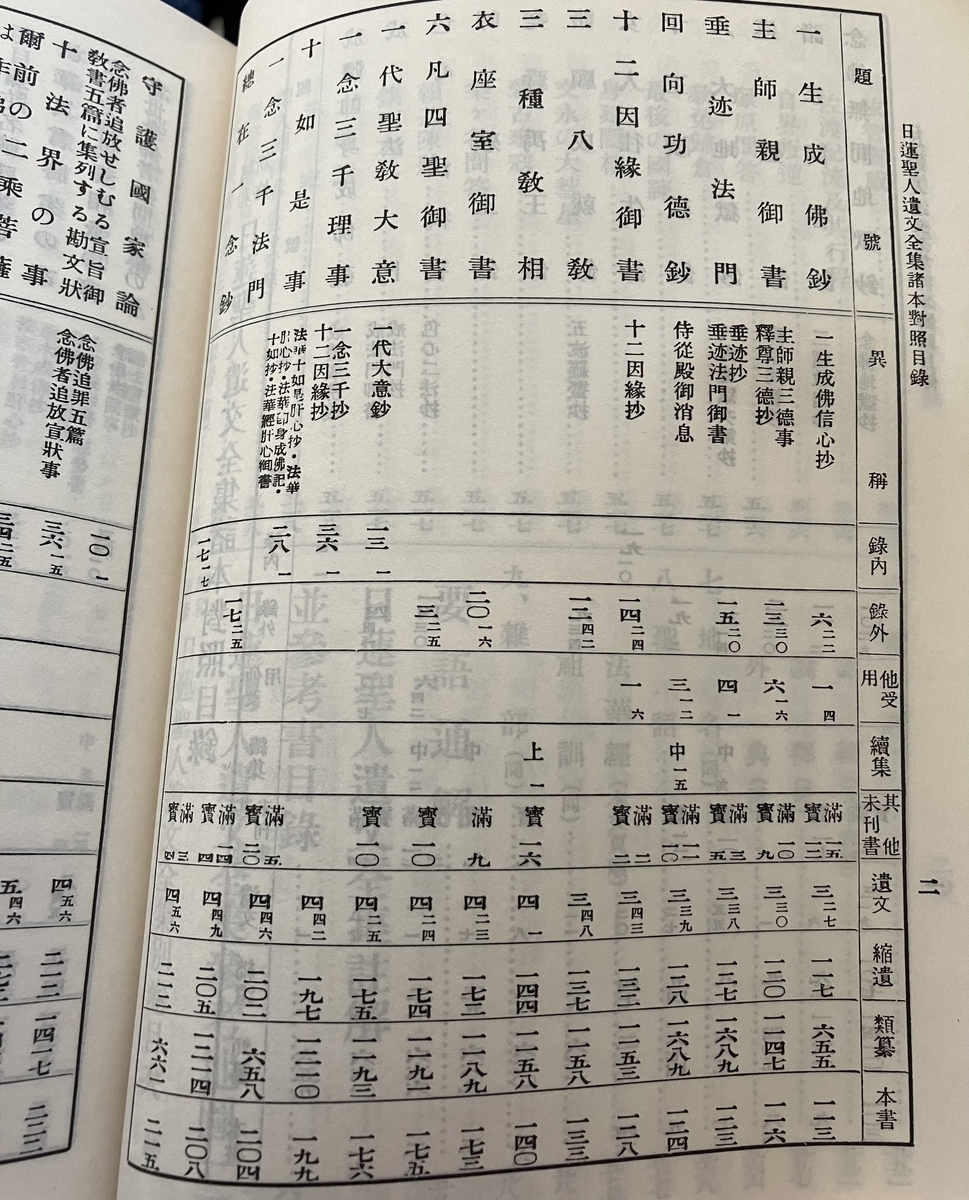 日蓮聖人遺文全集諸本對照目錄
二
題號 異稱 錄內 錄外 他受用 續集 其他未刊書 遺文 縮遺 類纂 本書
一生成佛鈔 一生成佛信心抄 六 二二 一 四 滿一五 寶一二 三 二七 一一七 六五五 一一三
主師親御書 主師親三德事 釋尊三德抄 一三 三〇 六 一六 滿一〇 寶九 三 三〇 一二〇 一一四七 一一六
垂迹法門 垂迹抄 垂迹法門御書 一五 二〇 四 一 滿三 寶五 三 三八 一二七 一六八九 一二三
回向功德鈔 侍從殿御消息 三 一二 中 一五 滿一一 寶一〇 三 三九 一二八 一六八九 一二四
十二因緣御書 十二因緣抄 一四 二四 一 六 滿二 寶二 三 四三 一三二 一一五三 一二八
三八敎 一二 四二 三 四八 一三七 一一五八 一三三
三種敎相 上 一 寶一六 四 一 一四四 一一五八 一四〇
衣座室御書 二〇 一六 滿九 四 二三 一七三 一一八九 一七三
六凡四聖御書 一三 二五 寶一〇 四 二四 一七四 一一九一 一七五
一代聖敎大意 一代大意鈔 一三 一 寶一〇 四 二五 一七五 一一九三 一七六
一念三千理事 一念三千抄 十二因緣抄 三六 一 四 四二 一九七 一二二〇 一九九
十如是事 法華十如是肝心抄・法華肝心抄・法華即身成佛記・十如抄・法華經肝心御書 二八 一 滿五 寶二〇 四 四六 二〇二 六五八 二〇四
一念三千法門 一七 二五 滿一四 寶四 四 四九 二〇五 一二一四 二〇八
總在一念鈔 一七 一七 滿三 寶四 四 五六 二一二 六六一 二一五
守護國家論
念佛者追放せしむる宣旨御敎書五篇に集列する勘文狀 念佛追罪五篇 念佛者追放宣狀事
十法界の事
爾前の二乘菩薩